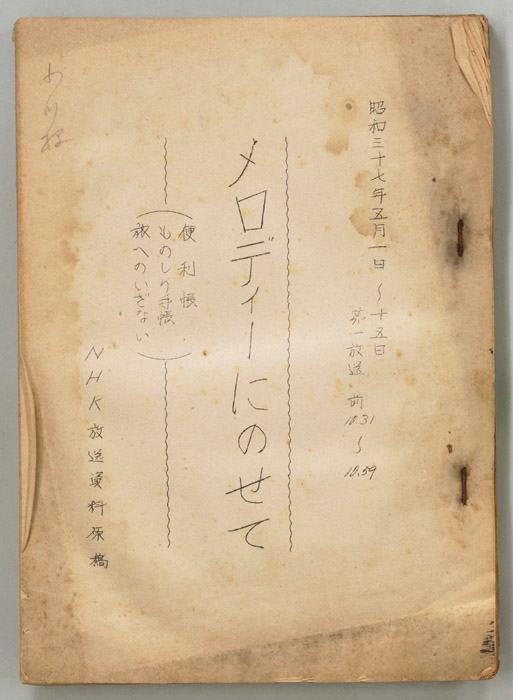 昭和三十七年五月一日〜十五日
第一放送 前10.31〜10.59
メロディーにのせて
(便利帳.
ものしり手帳
旅へのいざない)
NHK放送資料原稿